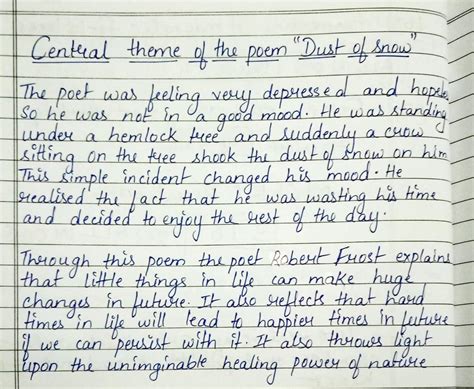 Central theme of the poem "Dust of snow"
The poet was feeling very depressed and hopeles
so he was not in a good mood. He was standing
under a hemlock tree and suddenly a crow
sitting on the tree shook the dust of snow on him
This simple incident changed his mood. He
realised the fact that he was wasting his time
and decided to enjoy the rest of the day.
Through this poem the poet Robert Frost explains
that little things in life can make huge
changes in future. It also reflects that hard
times in life will lead to happier times in future
if we can persist with it. It also throws light
upon the unimginable healing power of nature